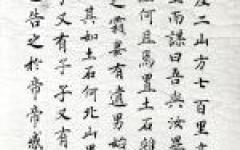 屋二山方七百里高
室而謀曰吾與汝畢
何且焉置土石雜
之孀妻有遺男始
其如土石何北山
子又有子子又有
之告之於帝帝感